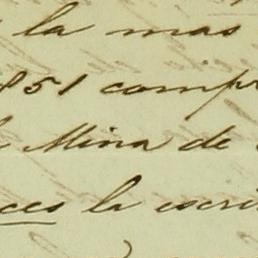 la mas
851 comp
Mina de
ces la escri